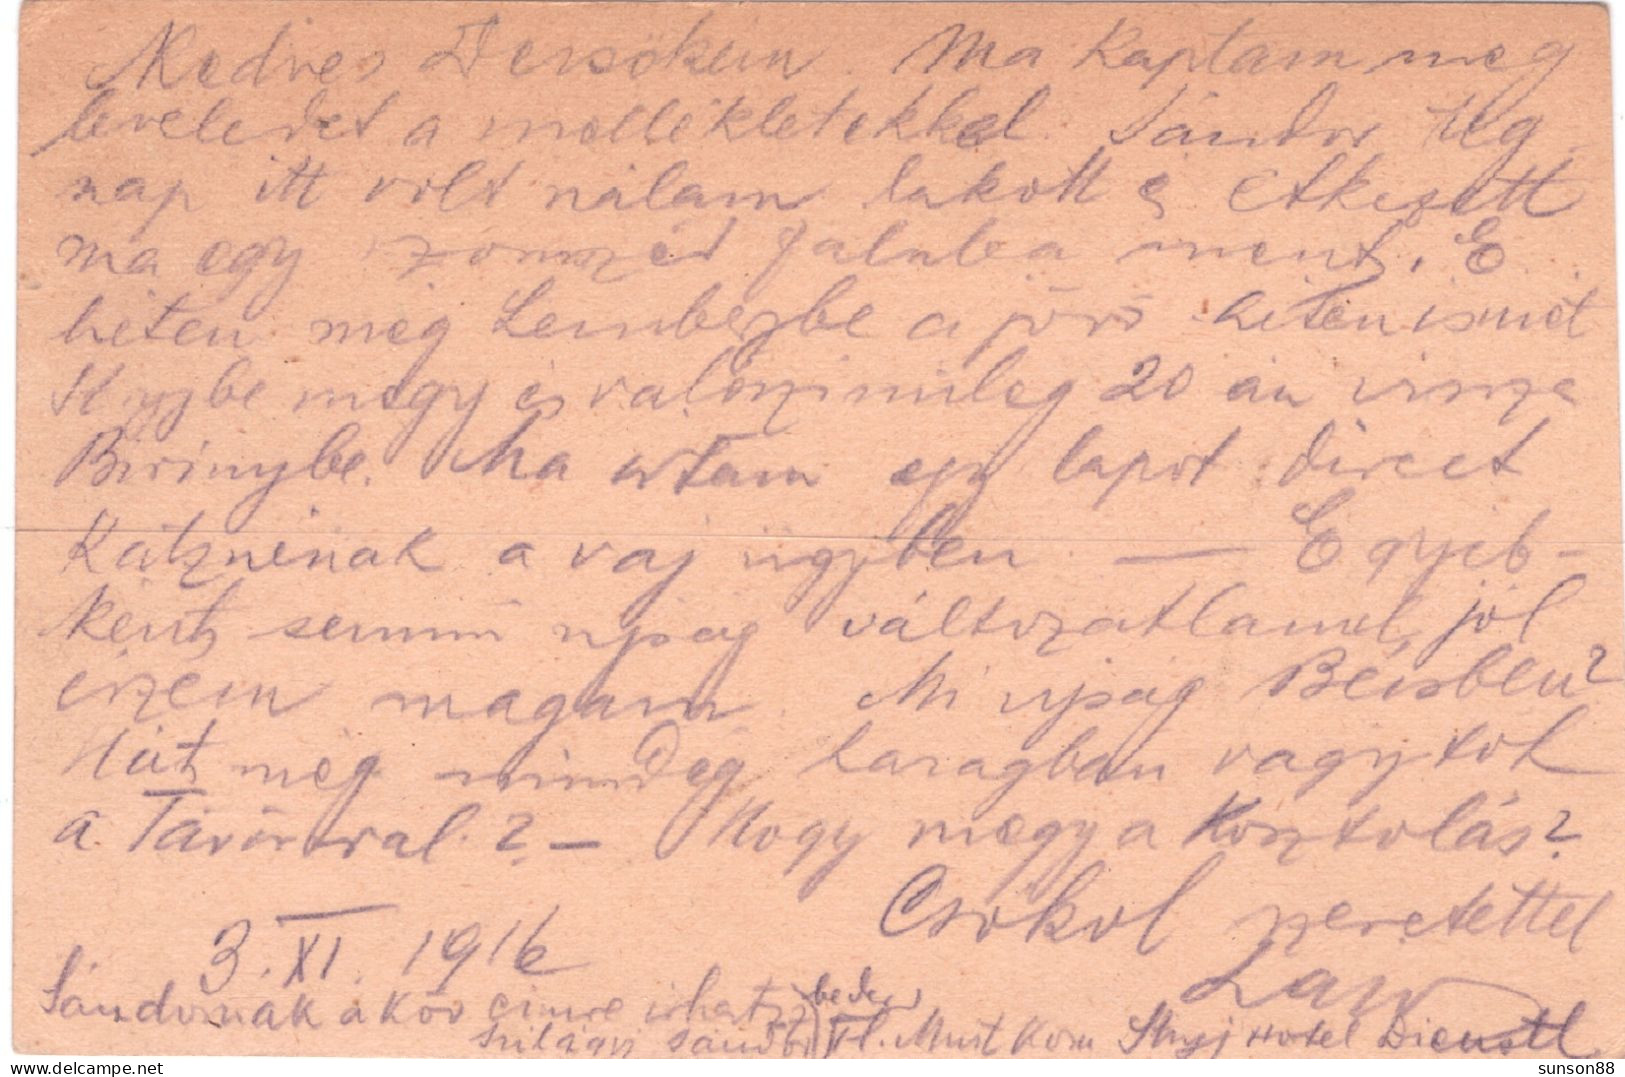 Kedves Dersökém. Ma kaptam meg
leveledet a mellékletekkel. Sándor teg
nap itt volt nálam lakott és étkezett
ma egy szomszéd faluba ment. E
héten még Lembergbe a jövö héten ismét
Stryjbe megy és valószinüleg 20 án vissza
be. Ma irtam egy lapot direct
Katznénak a vaj ügyben — Egyéb-
ként semmi ujság változatlanul jól
érzem magam. Mi ujság Bécsben?
Hát még mindég haragban vagytok
a val? — Hogy megy a Kosztolás?
Csókol szeretettel
3. XI. 1916
Sándornak a köv cimre irhatsz
Szilágyi Sándor Hotel
sunson88